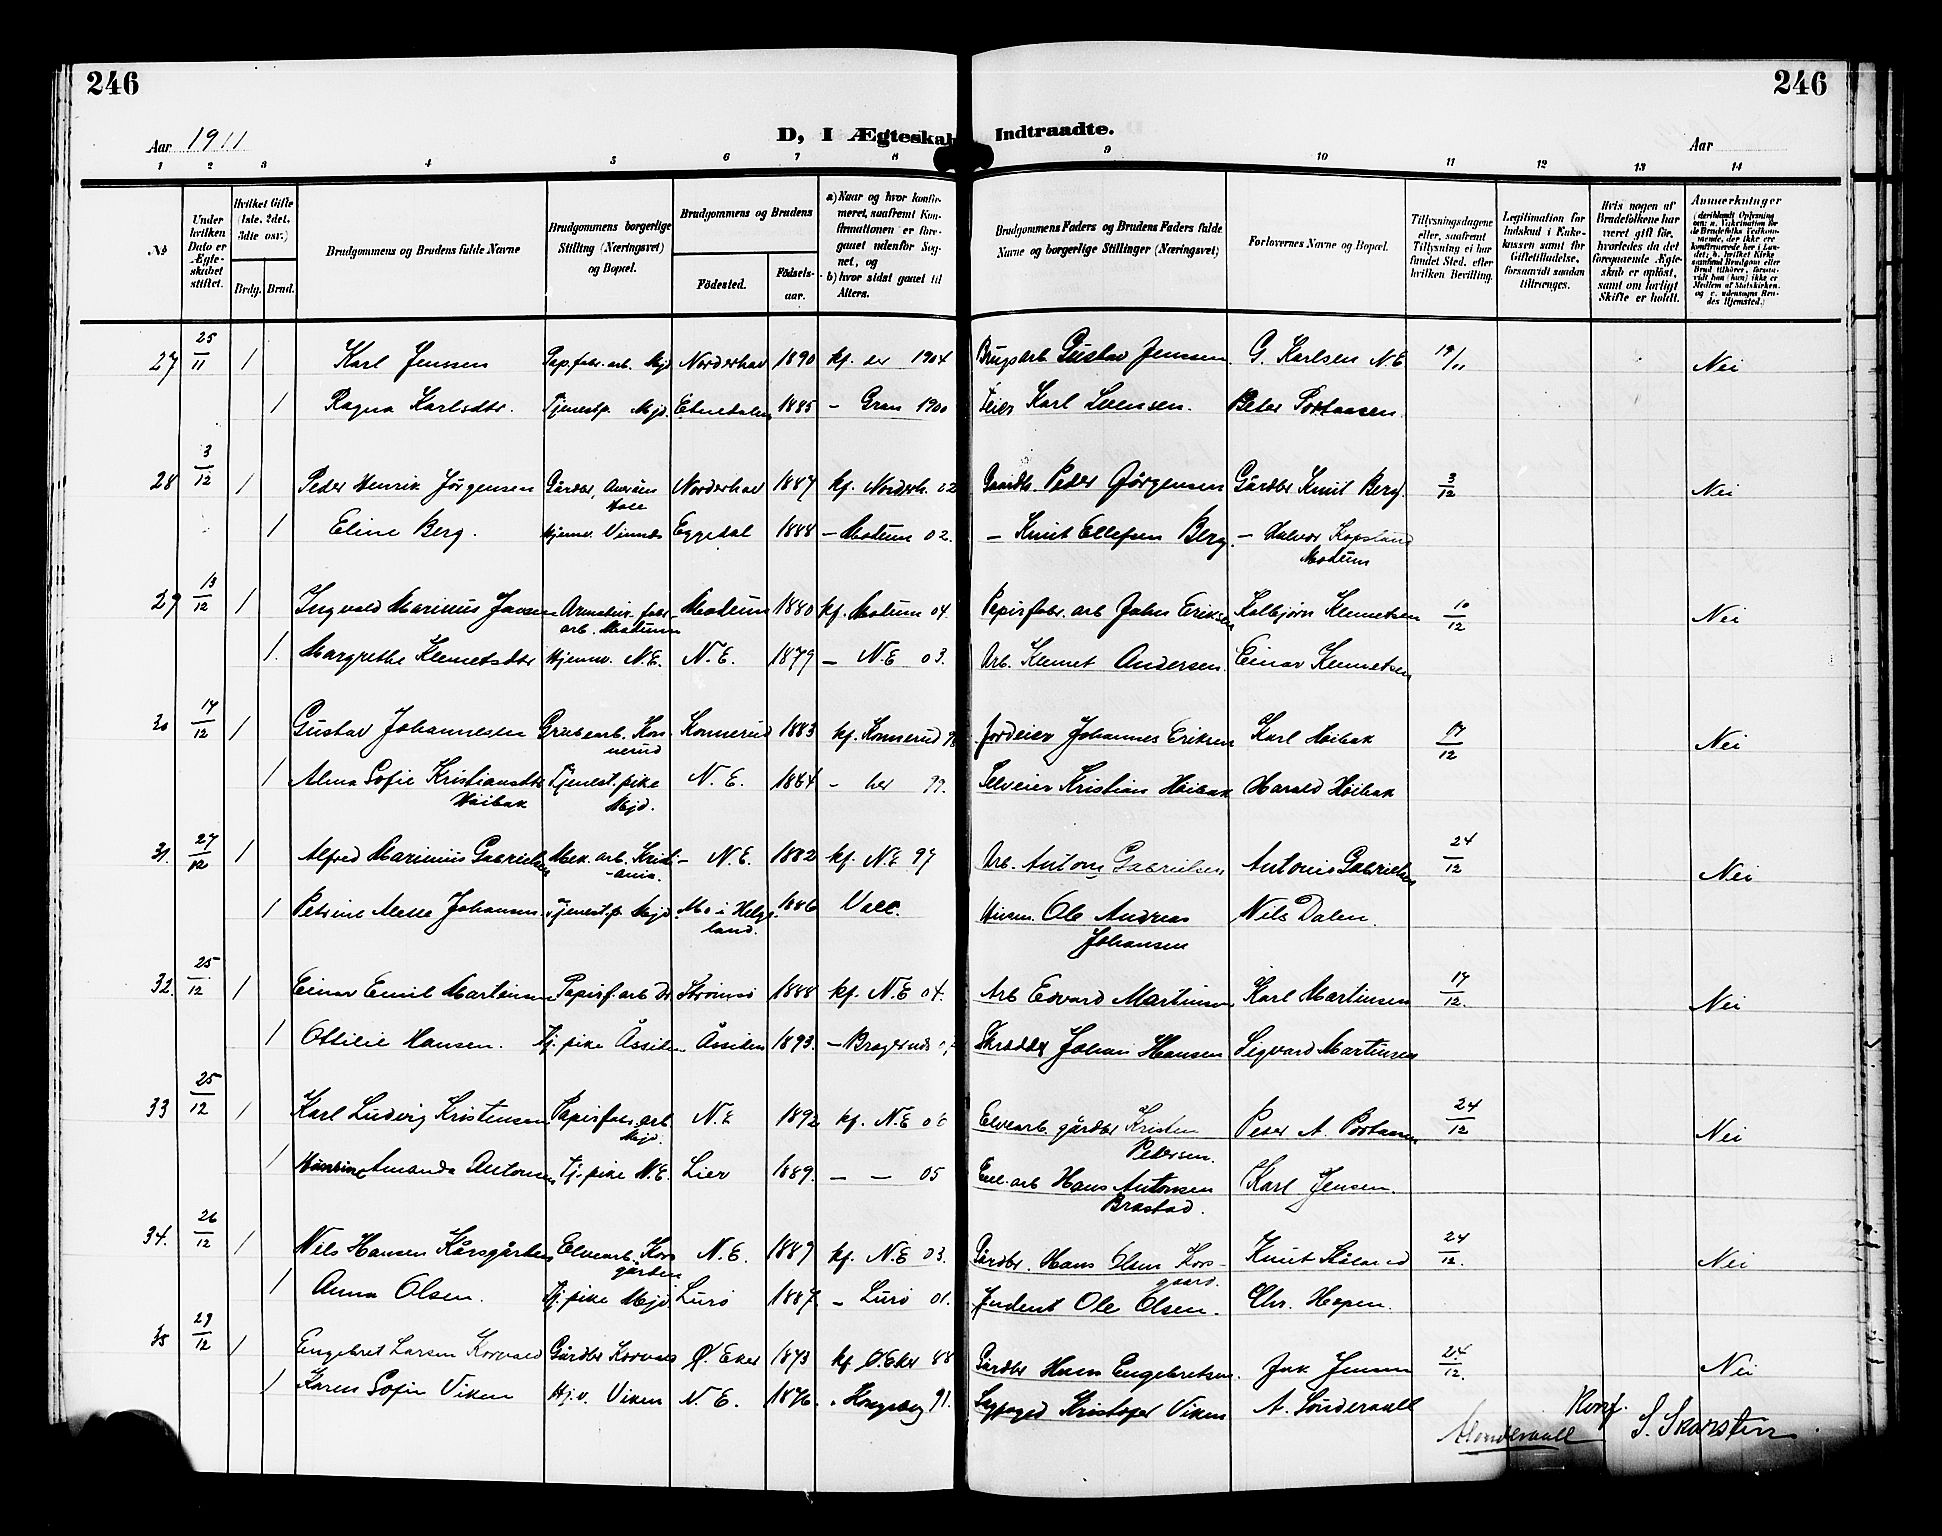 246
246
Aar 1911
D, I Ægteskab Indtraadte.
Aar
1 2 3 4 5 6 7 8 9 10 11 12 13 14
No
Under hvilken Dato er Ægteskabet stiftet.
Hvilket Gifte (1ste, 2det, 3die osv.)
Brdg. Brud.
Brudgommens og Brudens fulde Navne
Brudgommens borgerlige Stilling (Næringsvei) og Bopæl.
Brudgommens og Brudens
Födested.
Födsels-aar.
a) Naar og hvor konfirmeret, saafremt Konfirmationen er foregaaet udenfor Sognet, og
b) hvor sidst gaaet til Alters.
Brudgommens Faders og Brudens Faders fulde Navne og borgerlige Stillinger (Næringsvei)
Forlovernes Navne og Bopæl.
Tillysningsdagene eller, saafremt Tillysning ei har fundet Sted, efter hvilken Bevilling.
Legitimation for Indskud i Enkekassen samt for Giftetilladelse, forsaavidt saadan tiltrænges.
Hvis nogen af Brudefolkene har været gift før, hvorledes da det foregaaende Ægteskab er opløst, samt om lovligt Skifte er holdt.
Anmerkninger
27 25/11 1 Karl Jenssen Pap.fabr.arb. Mjd Norderhov 1890 kf. her 1904 Brugsarb Gustav Jenssen G. Karlsen N.E 19/11 Nei
1 Ragna Karlsdtr. Tjenestp. Mjd. Etnedalen 1885 – Gran 1900 Feier Karl Svensen. Peter Portaasen.
28 3/12 1 Peder Henrik Jørgensen Gårdbr, Norderhov 1887 kf. Norderh. 02 Gaardb. Peder Jørgensen Gårdbr Knut Berg. 3/12 Nei
Hole
1 Eline Berg. Hjemv. Vinnes Eggedal 1888 – Modum 02. – Knut Ellefsen Berg – Halvor Kopsland
Modum
29 13/12 1 Ingvald Marinius Modum 1880 kf. Modum 04. Papirfabr. arb John Eriksen Kolbjørn Klemetsen 10/12 Nei
arb. Modum
1. Margrethe Klemetsdtr Hjemv. N.E. N.E. 1879 – N.E 03. Arb. Klemet Andersen. Einar Klemetsen
30 17/12 1 Gustav Johannesen Grubearb. Kon- Konnerud 1883 kf. Konnerud 98 Jordeier Johannes Eriksen Karl Høibak 17/12 Nei
nerud
1 Alma Sofie Kristiansdtr Tjenest.pike N.E. 1884 – her 99. Selveier Kristian Høibak Harald Høibak
Høibak Mjd.
31. 27/12 1 Alfred Marinius Gabrielsen Mek. arb. Kristi- N.E. 1882 kf. N.E 97 Arb. Anton Gabrielsen Antonius Gabrielsen 24/12 Nei
ania.
1 Petrine Johansen Tjenest.p. Mjd Mo i Helge- 1886 Husm. Ole Andreas Nils Dalen.
land. Johansen
32. 25/12 1 Einar Emil Martinsen Papirf.arb Dr Strømsø 1888 kf. N.E 04. Arb Edvard Martinsen Karl Martinsen 17/12 Nei
1 Ottilie Hansen. Tj. pike Åssiden Åssiden 1893. – Bragernes Skrædder Johan Hansen Sigvard Martinsen
33 25/12 1 Karl Ludvig Kristensen Papirfabr. arb N.E 1892 kf. N.E 06 Elvearb. gårdbr Kristen Peder A. Portaasen 24/12 Nei
Mjd. Pedersen.
1 Amanda Antonsen Tj. pike N.E. Lier 1889. – – 05 Hans Antonsen Karl Jensen.
Brastad.
34. 26/12 1 Nils Hansen Kårsgården Elvearb. Kors N.E. 1889 kf. N.E 03. Gårdbr. Hans Olsen Kors- Knut 24/12. Nei
gården gaard.
1 Anna Olsen. Tj. pike Mjd. Lurö 1887. – Lurö 01. Ole Olsen. Chr. Hopen.
35 29/12 1 Engebret Larsen Korvald Gårdbr Korvald Ø. Eker 1873 kf Ø.Eker 88 Gårdbr Hans Engebretsen. Jak Jensen 24/12. Nei
1 Karen Sofie Viken Hj.v. Viken N.E. 1876. " Kongsberg 91. Kristofer Viken A. Sønderaall
Konf.
S. Skarsten